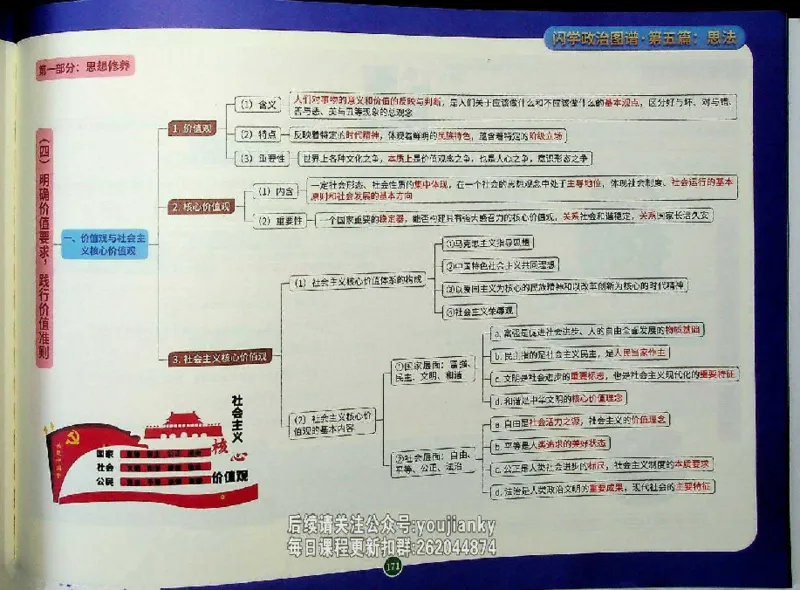 闪学政治图谱·第五篇：思法
第一部分：思想修养
（四）明确价值要求，践行价值准则
一、价值观与社会主
义核心价值观
1. 价值观
（1）含义
人们对事物的意义和价值的反映与判断，是人们关于应该做什么和不应该做什么的基本观点，区分好与坏、对与错、
善与恶、美与丑等现象的总观念
（2）特点
反映着特定的时代精神，体现着鲜明的民族特色，蕴含着特定的阶级立场
（3）重要性
世界上各种文化之争，本质上是价值观念之争，也是人心之争、意识形态之争
2. 核心价值观
（1）内含
一定社会形态、社会性质的集中体现，在一个社会的思想观念中处于主导地位，体现社会制度、社会运行的基本
原则和社会发展的基本方向
（2）重要性
一个国家重要的稳定器，能否构建具有强大感召力的核心价值观，关系社会和谐稳定，关系国家长治久安
3. 社会主义核心价值观
（1）社会主义核心价值体系的构成
①马克思主义指导思想
②中国特色社会主义共同理想
③以爱国主义为核心的民族精神和以改革创新为核心的时代精神
④社会主义荣辱观
（2）社会主义核心价
值观的基本内容
①国家层面：富强、
民主、文明、和谐
a. 富强是促进社会进步、人的自由全面发展的物质基础
b. 民主指的是社会主义民主，是人民当家作主
c. 文明是社会进步的重要标志，也是社会主义现代化的重要特征
d. 和谐是中华文明的核心价值理念
②社会层面：自由、
平等、公正、法治
a. 自由是社会活力之源，社会主义的价值理念
b. 平等是人类追求的美好状态
c. 公正是人类社会进步的标尺，社会主义制度的本质要求
d. 法治是人类政治文明的重要成果，现代社会的主要特征
社会主义
核心
价值观
国家
社会
公民
后续请关注公众号:youjianky
每日课程更新扣群:262044874
171